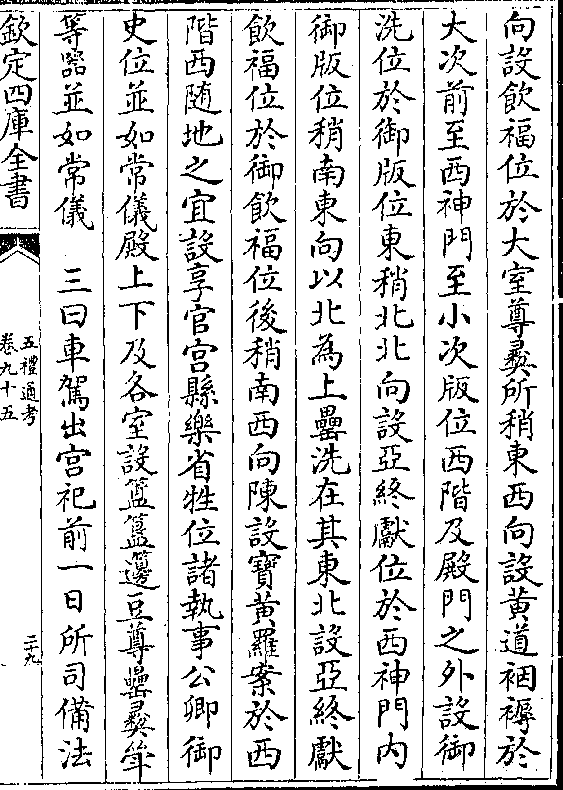 向設飲福位於大室尊彝所稍東西向設黄道裀褥於
大次前至西神門至小次版位西階及殿門之外設御
洗位於御版位東稍北北向設亞終獻位於西神門内
御版位稍南東向以北為上罍洗在其東北設亞終獻
飲福位於御飲福位後稍南西向陳設寶黄羅案於西
階西随地之宜設享官宫縣樂省牲位諸執事公卿御
史位並如常儀殿上下及各室設簠簋籩豆尊罍彝斝
等器並如常儀　三曰車駕出宫祀前一日所司備法
欽定四庫全書
五禮通考
卷九十五
二十九